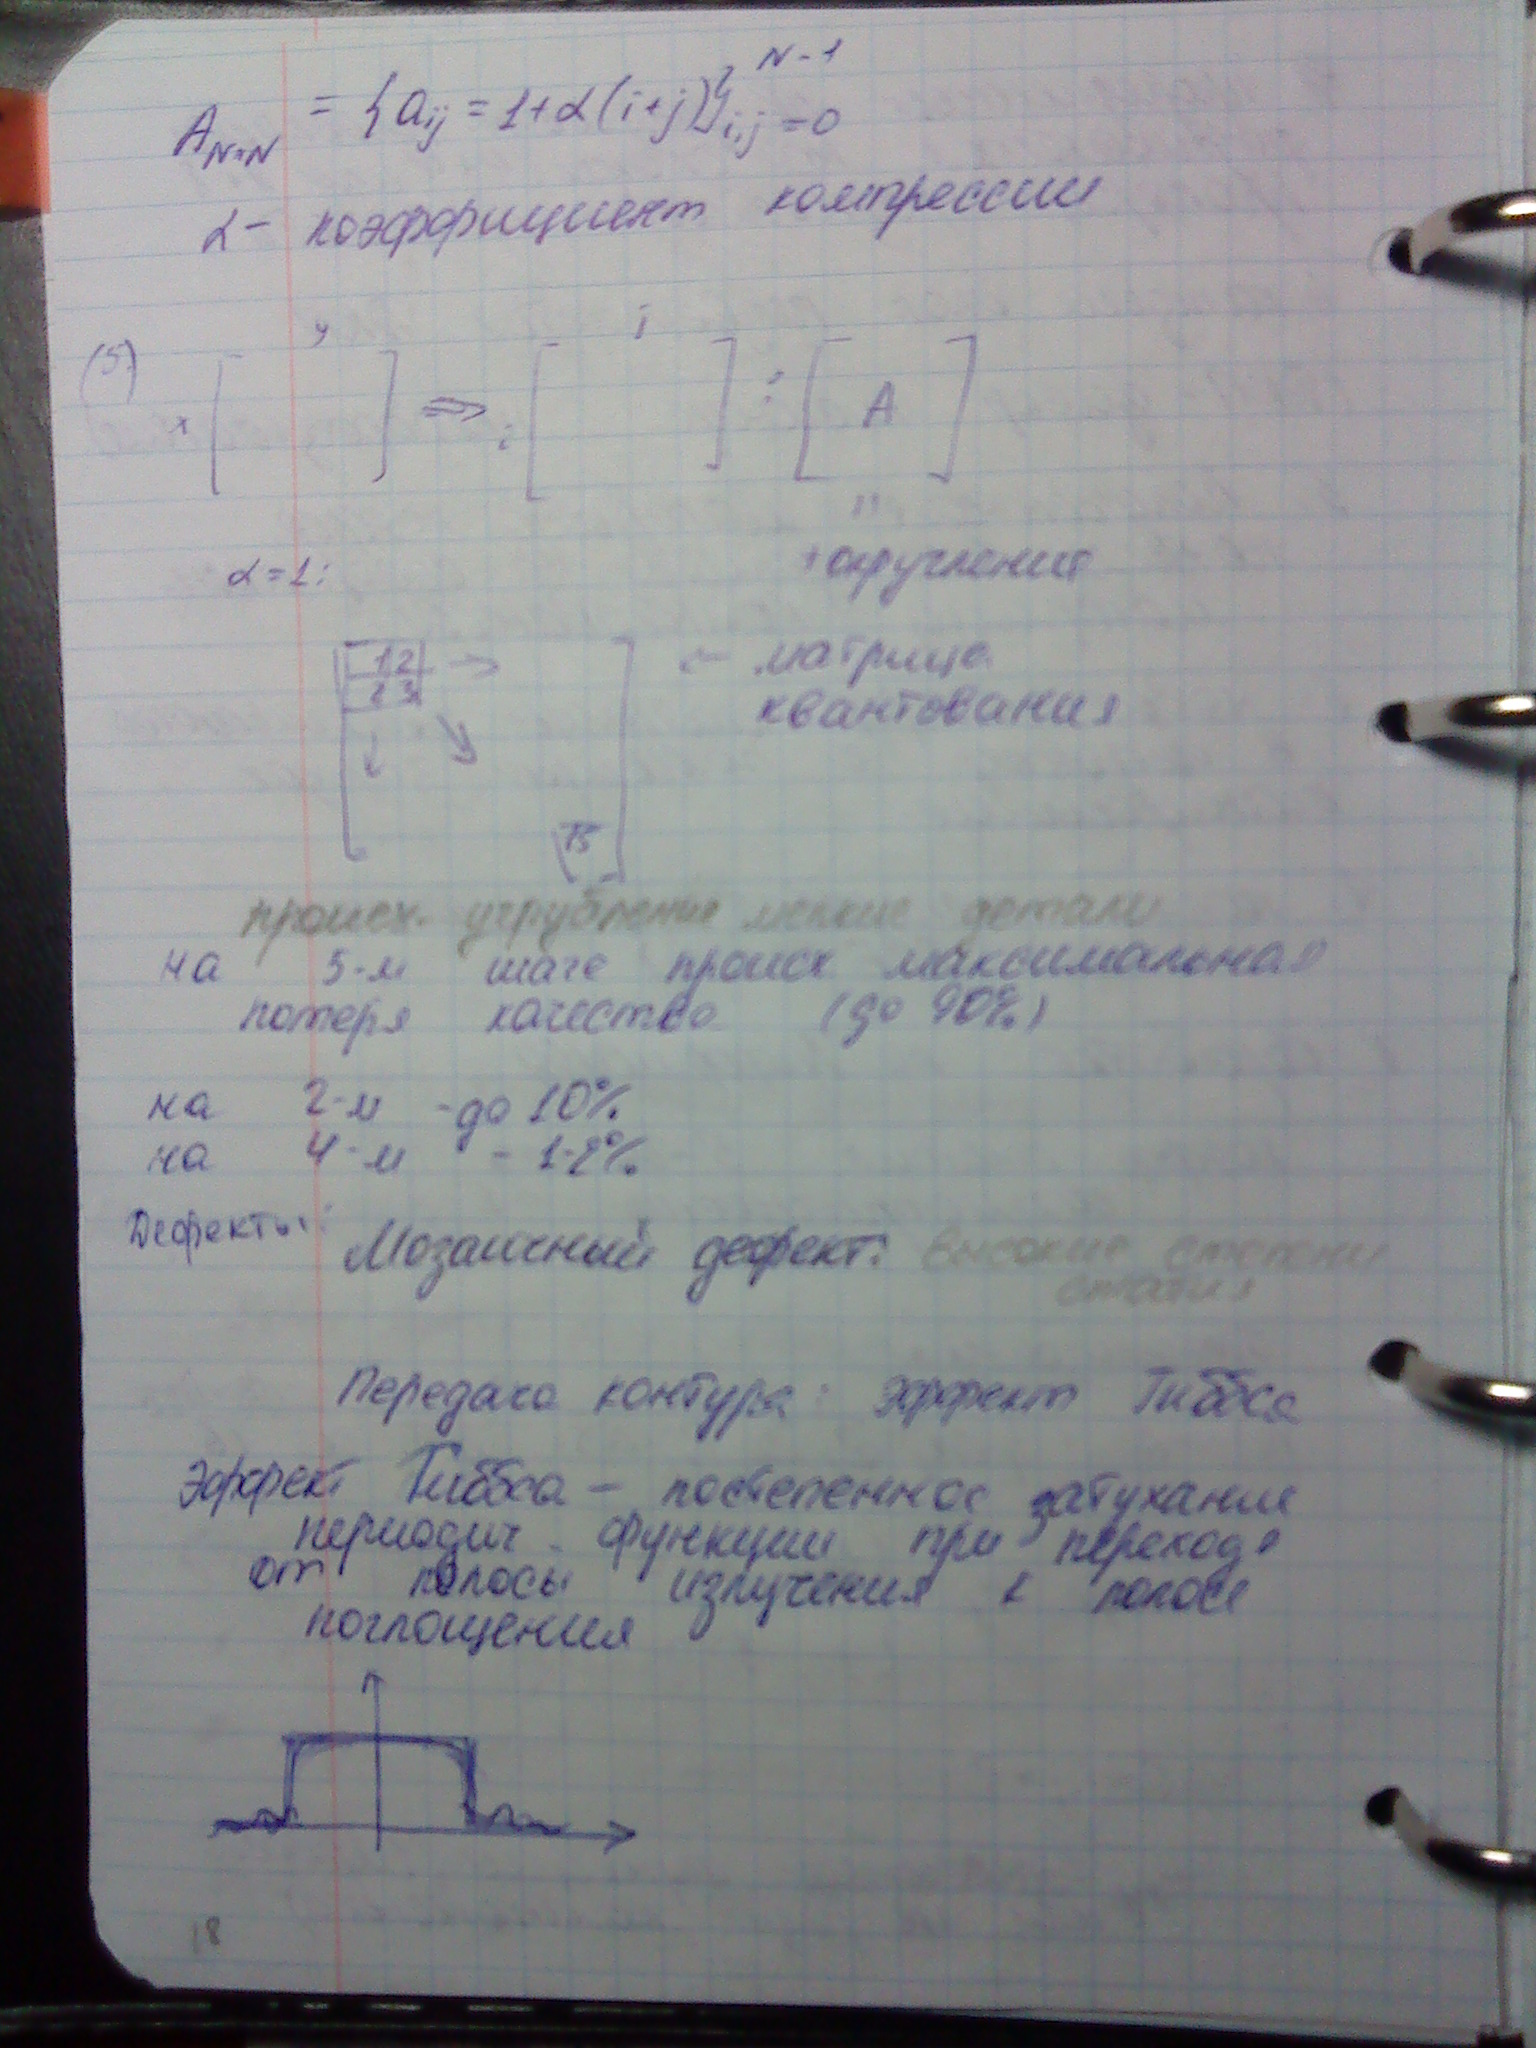 A_{N×N} = {a_{ij} = 1+α(i+j)}_{i,j=0}^{N-1}
α - коэффициент компрессии
(5)
y j
x [ ] => i [ ] : [ A ]
"
α=1: + округление
1 2 → ← матрица
2 3 квантования
↓ ↘
15
происх. угрубление мелкие детали
на 5-м шаге происх максимальная
потеря качества (до 90%)
на 2-м - до 10%
на 4-м - 1-2%
Дефекты: Мозаичный дефект: высокие степени
сжатия
Передача контура: эффект Гиббса
Эффект Гиббса – постепенное затухание
периодич. функции при переходе
от полосы излучения к полосе
поглощения
18